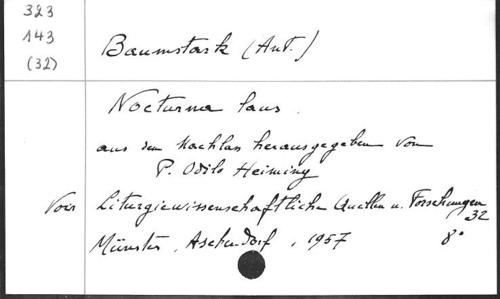 323
143
(32)
Baumstark (Ant.)
Nocturna laus.
aus dem Nachlass herausgegeben von
P. Odilo Heiming
Voir Liturgiewissenschaftliche Quellen u. Forschungen
32
Münster, Aschendorf, 1957 8°